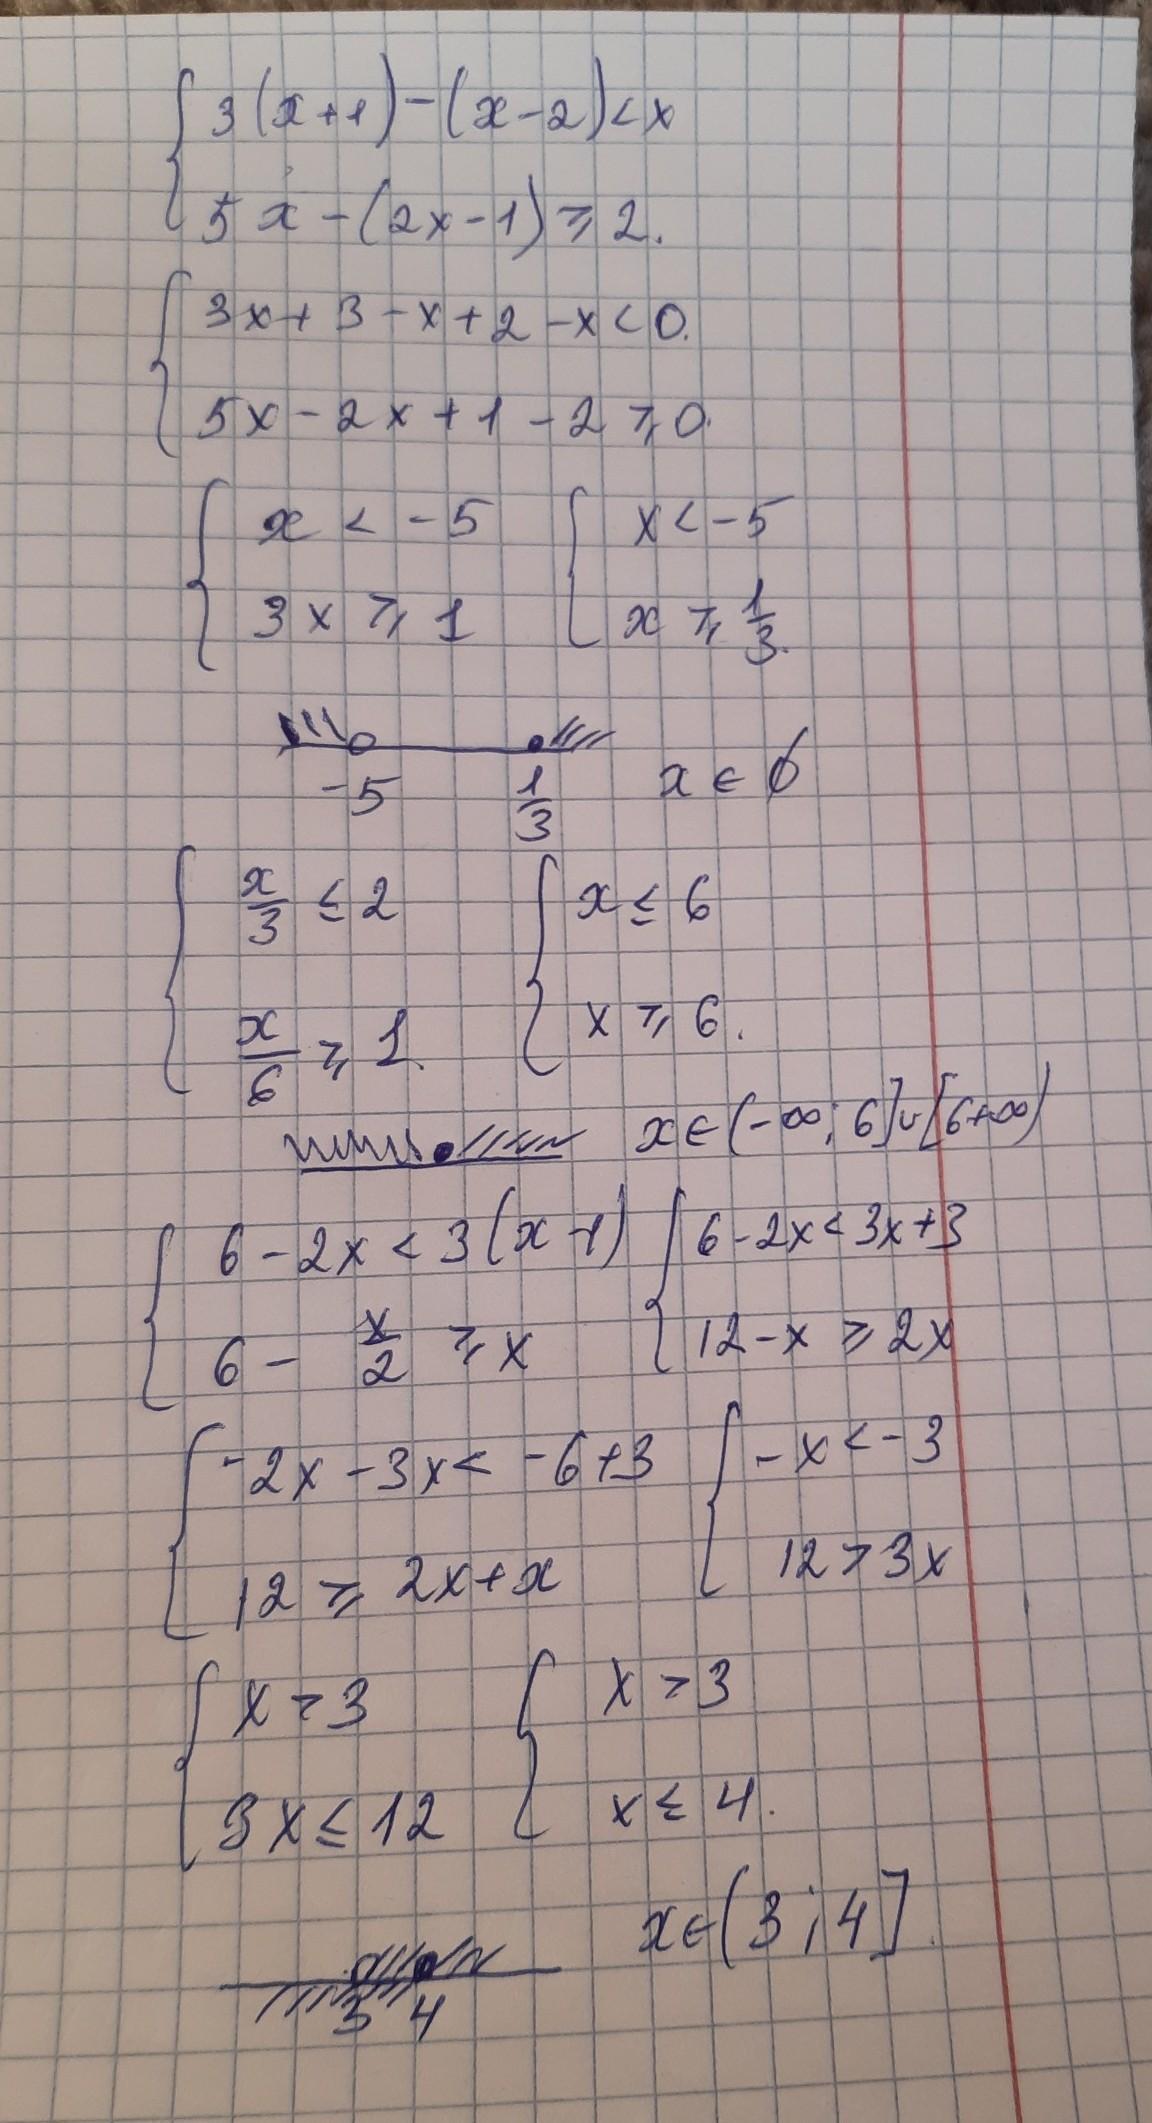 3(x+1)-(x-2)<x
5x-(2x-1)⩾2.
3x+3-x+2-x<0.
5x-2x+1-2⩾0.
x < -5 x<-5
3x ⩾ 1 x ⩾ 1/3.
-5 1/3 x ∈ ∅
x/3 ≤ 2 x ≤ 6
x/6 ⩾ 1. x ⩾ 6.
x∈(-∞; 6]∪[6+∞)
6-2x<3(x-1) 6-2x<3x+3
6 - x/2 ⩾ x 12-x ⩾ 2x
-2x-3x< -6+3 -x<-3
12 ⩾ 2x+x 12>3x
x>3 x>3
3x≤12 x≤4.
x∈(3;4].
3 4